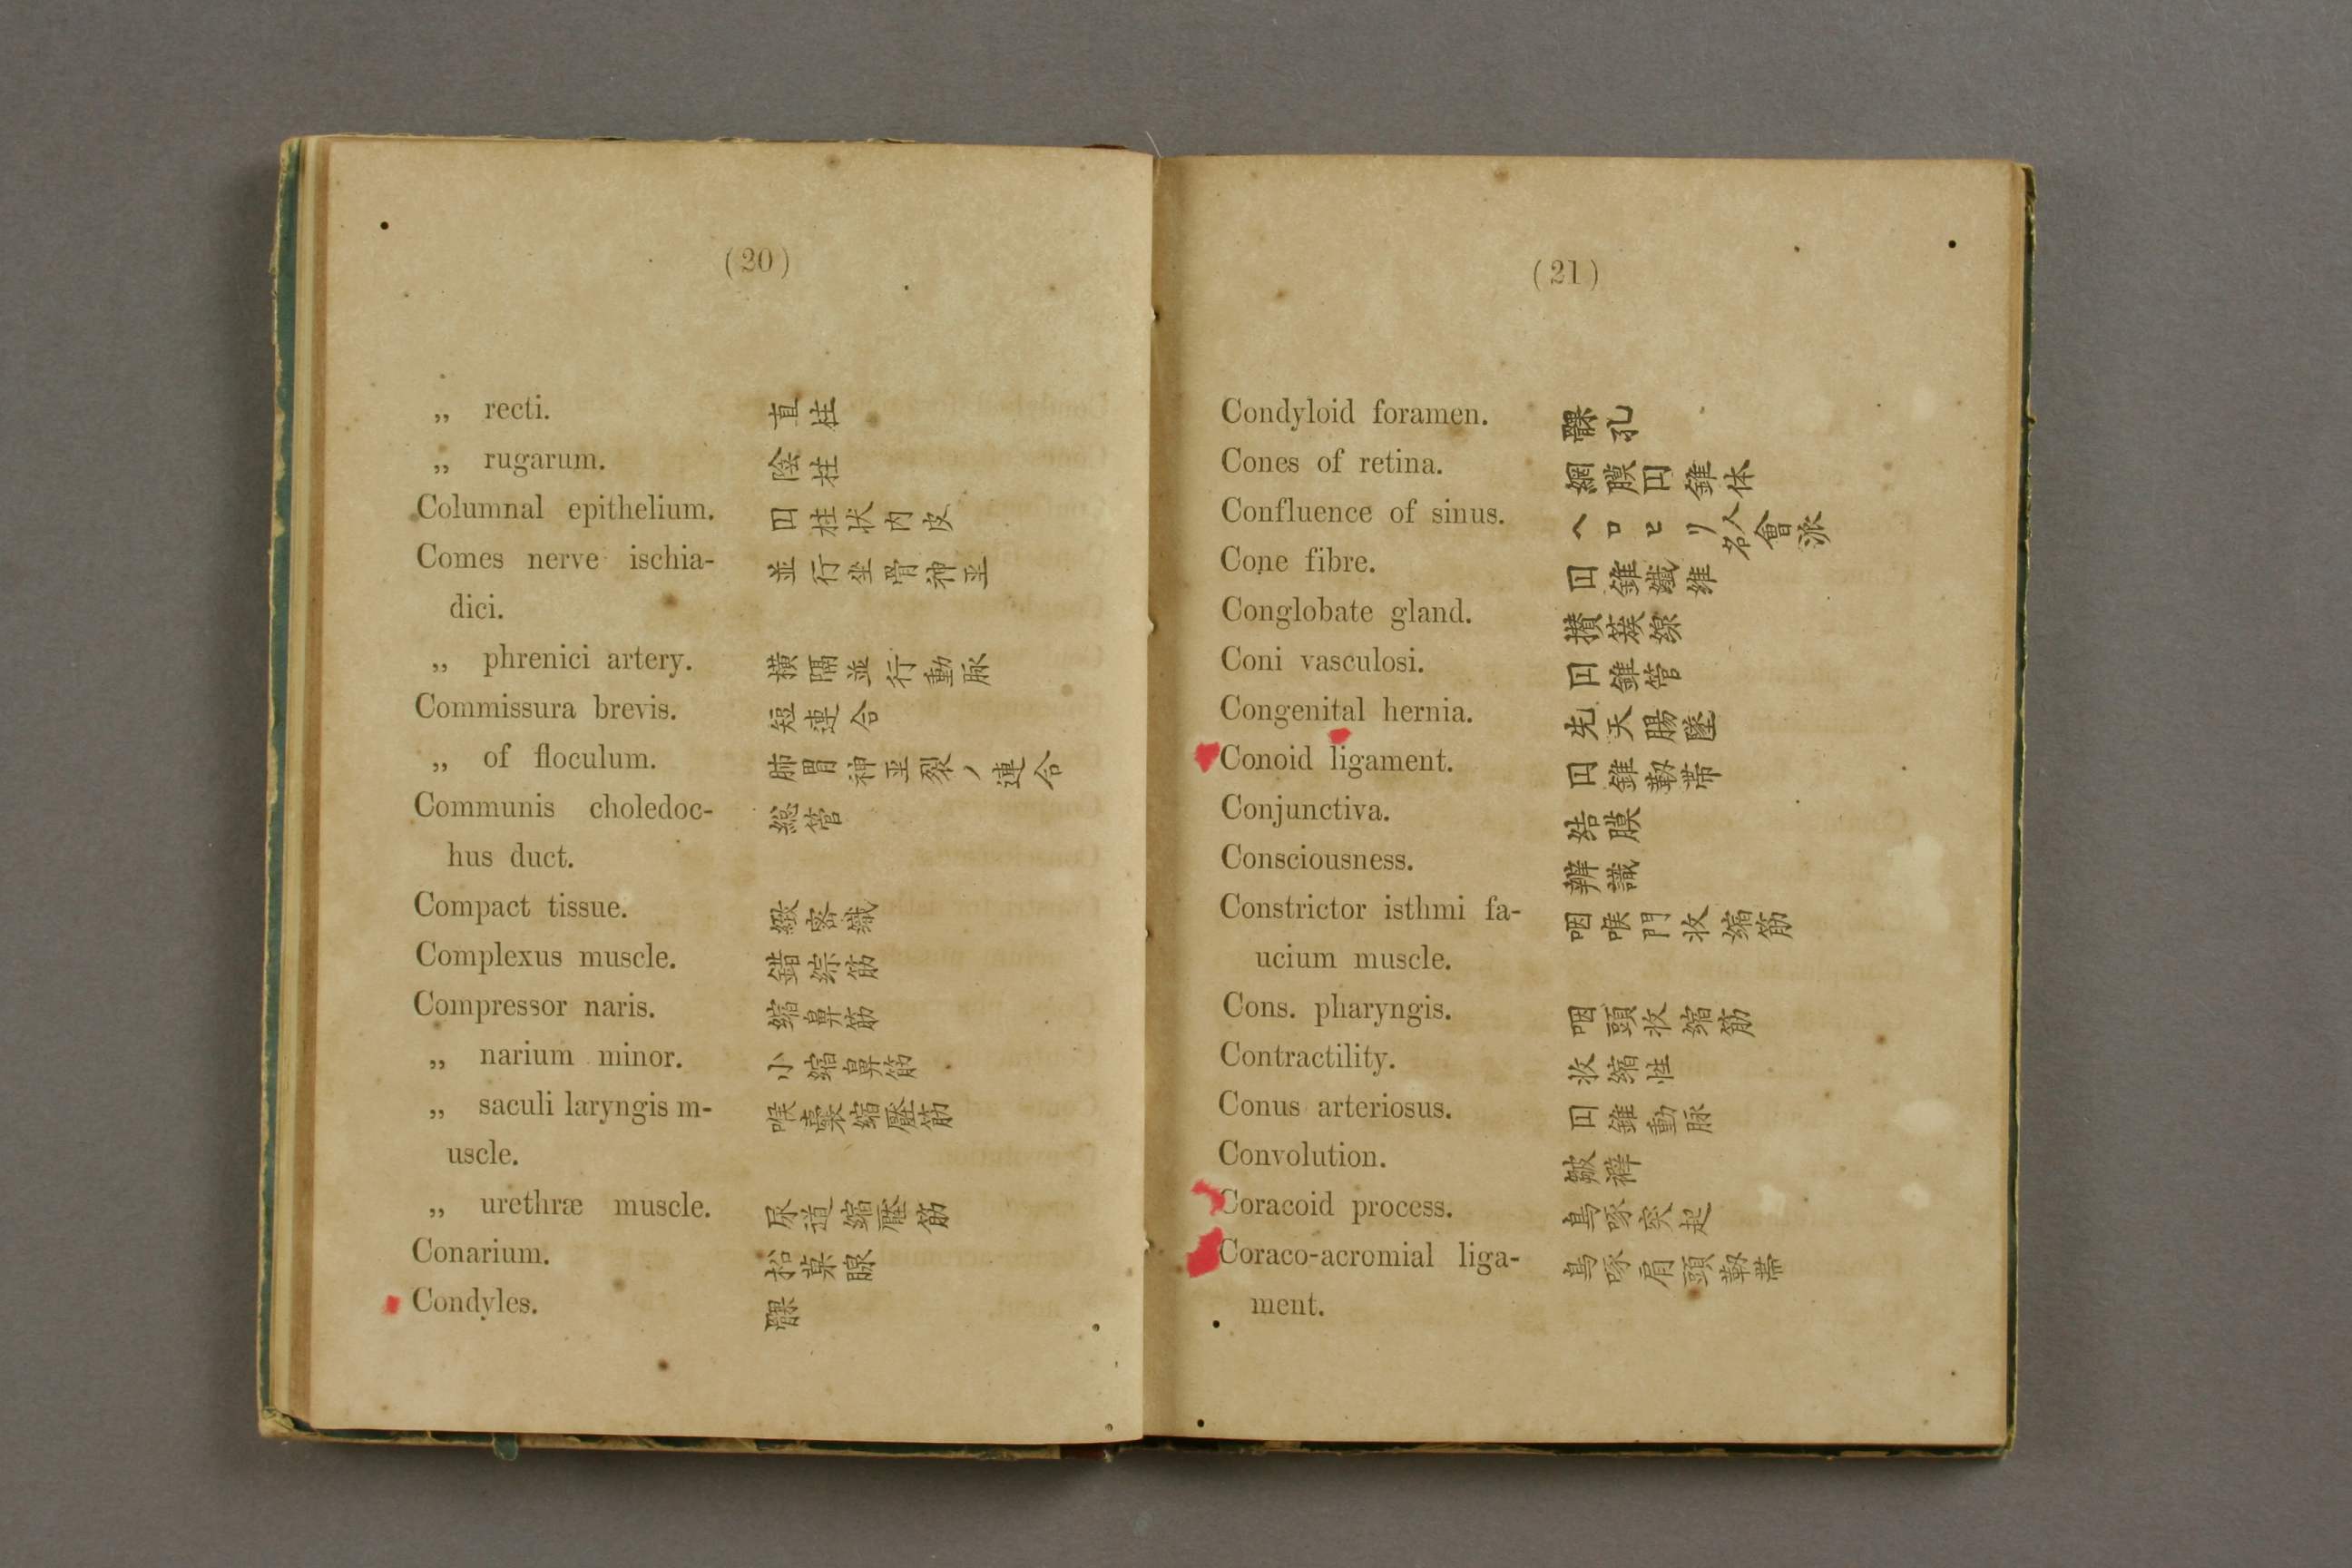 (20)
„ recti. 直柱
„ rugarum. 陰柱
Columnal epithelium. 円柱状内皮
Comes nerve ischia- 並行坐骨神巠
dici.
„ phrenici artery. 横隔並行動脉
Commissura brevis. 短連合
„ of floculum. 肺胃神巠裂ノ連合
Communis choledoc- 総管
hus duct.
Compact tissue. 緻密織
Complexus muscle. 錯綜筋
Compressor naris. 縮鼻筋
„ narium minor. 小縮鼻筋
„ saculi laryngis m- 喉嚢縮壓筋
uscle.
„ urethræ muscle. 尿道縮壓筋
Conarium. 松菓腺
Condyles. 髁
(21)
Condyloid foramen. 髁孔
Cones of retina. 網膜円錐体
Confluence of sinus. ヘロヒリ人名會派
Cone fibre. 円錐纎維
Conglobate gland. 攅簇線
Coni vasculosi. 円錐管
Congenital hernia. 先天腸墜
Conoid ligament. 円錐靱帯
Conjunctiva. 結膜
Consciousness. 辨識
Constrictor isthmi fa- 咽喉門收縮筋
ucium muscle.
Cons. pharyngis. 咽頭收縮筋
Contractility. 收縮性
Conus arteriosus. 円錐動脉
Convolution. 皺襞
Coracoid process. 鳥啄突起
Coraco-acromial liga- 鳥啄肩頭靱帯
ment.